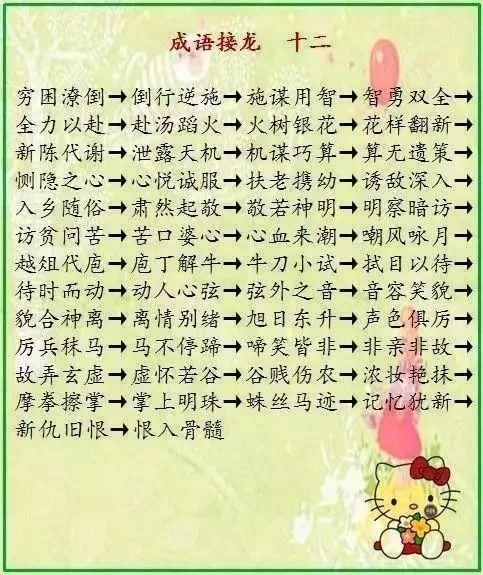 成语接龙 十二
穷困潦倒→倒行逆施→施谋用智→智勇双全→
全力以赴→赴汤蹈火→火树银花→花样翻新→
新陈代谢→泄露天机→机谋巧算→算无遗策→
恻隐之心→心悦诚服→扶老携幼→诱敌深入→
入乡随俗→肃然起敬→敬若神明→明察暗访→
访贫问苦→苦口婆心→心血来潮→嘲风咏月→
越俎代庖→庖丁解牛→牛刀小试→拭目以待→
待时而动→动人心弦→弦外之音→音容笑貌→
貌合神离→离情别绪→旭日东升→声色俱厉→
厉兵秣马→马不停蹄→啼笑皆非→非亲非故→
故弄玄虚→虚怀若谷→谷贱伤农→浓妆艳抹→
摩拳擦掌→掌上明珠→蛛丝马迹→记忆犹新→
新仇旧恨→恨入骨髓